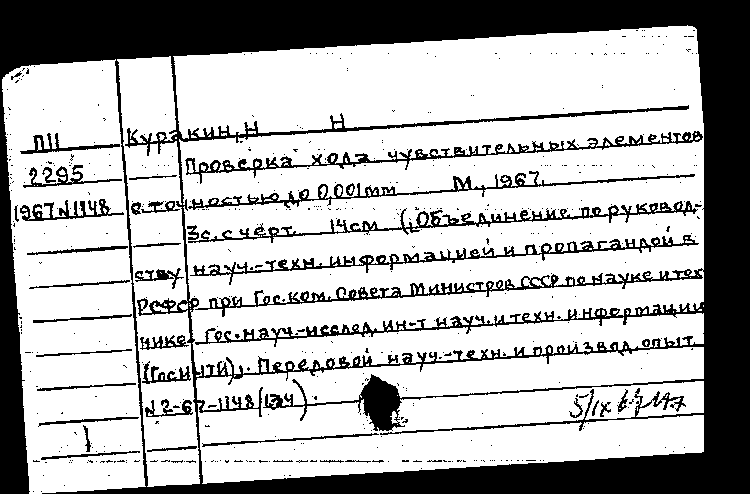 П11 Куракин, Н Н
2295 Проверка хода чувствительных элементов
1967 N1148 с точностью до 0,001mm М., 1967.
3с. с черт. 14см (Объединение по руковод-
ству науч.-техн. информацией и пропагандой в
РСФСР при Гос. ком. Совета Министров СССР по науке и тех
нике. Гос. науч.-исслед. ин-т науч. и техн. информации
(ГосИНТИ)). Передовой науч.-техн. и производ. опыт.
N 2-67-1148/
1 5/IX